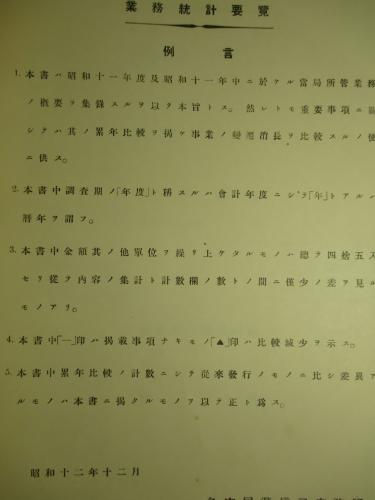 業務統計要覽
例言
1. 本書ハ昭和十一年度及昭和十一年中ニ於ケル當局所管業務
ノ概要ヲ集錄スルヲ以テ本旨トス。然レトモ重要事項ニ關
シテハ其ノ累年比較ヲ揭ケ事業ノ變遷消長ヲ比較スルノ便
ニ供ス。
2. 本書中調査期ノ「年度」ト稱スルハ會計年度ニシテ「年」トアルハ
曆年ヲ謂フ。
3. 本書中金額其ノ他單位ヲ繰リ上ケタルモノハ總テ四捨五入
セリ從テ內容ノ集計ト計數欄ノ數トノ間ニ僅少ノ差ヲ見ル
モノアリ。
4. 本書中「一」印ハ揭載事項ナキモノ「▲」印ハ比較減少ヲ示ス。
5. 本書中累年比較ノ計數ニシテ從來發行ノモノニ比シ差異ア
ルモノハ本書ニ揭タルモノヲ以テ正ト爲ス。
昭和十二年十二月